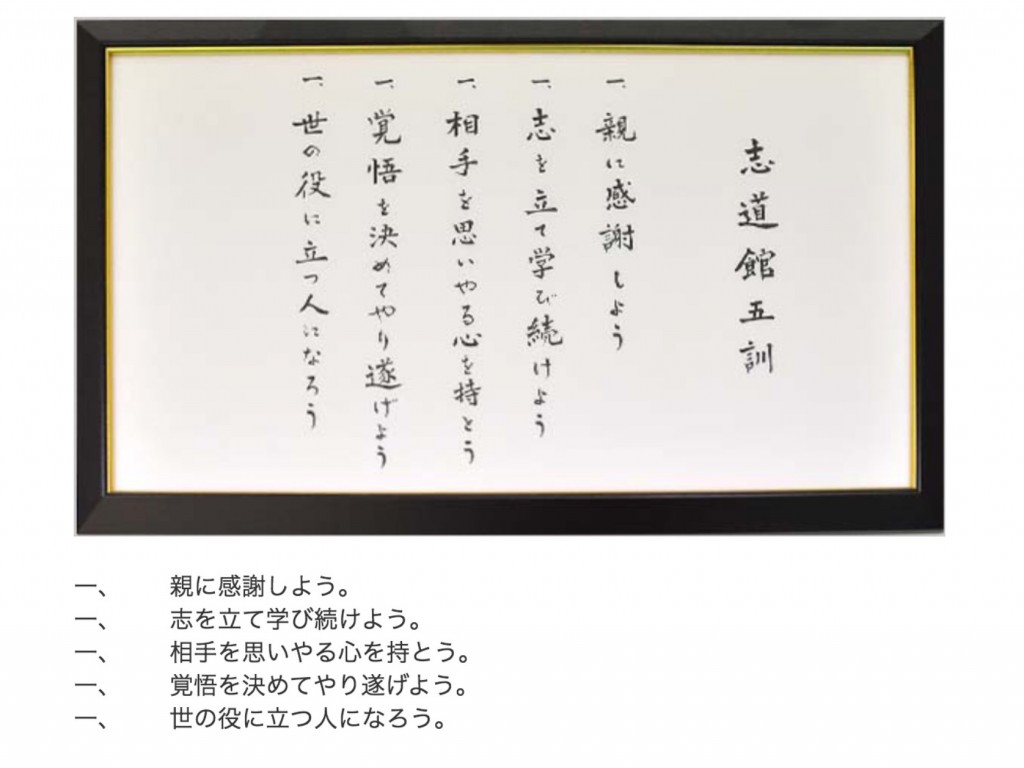 志道館五訓
一、親に感謝しよう
一、志を立て学び続けよう
一、相手を思いやる心を持とう
一、覚悟を決めてやり遂げよう
一、世の役に立つ人になろう
一、 親に感謝しよう。
一、 志を立て学び続けよう。
一、 相手を思いやる心を持とう。
一、 覚悟を決めてやり遂げよう。
一、 世の役に立つ人になろう。